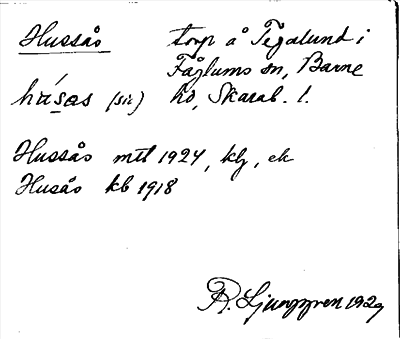 Hussås torp å Tegalund i
Fåglums sn, Barne
hu̇́sas (sic) hd, Skarab. l.
Hussås mtl 1924, klg, ek
Husås kb 1918
R. Ljunggren 1929